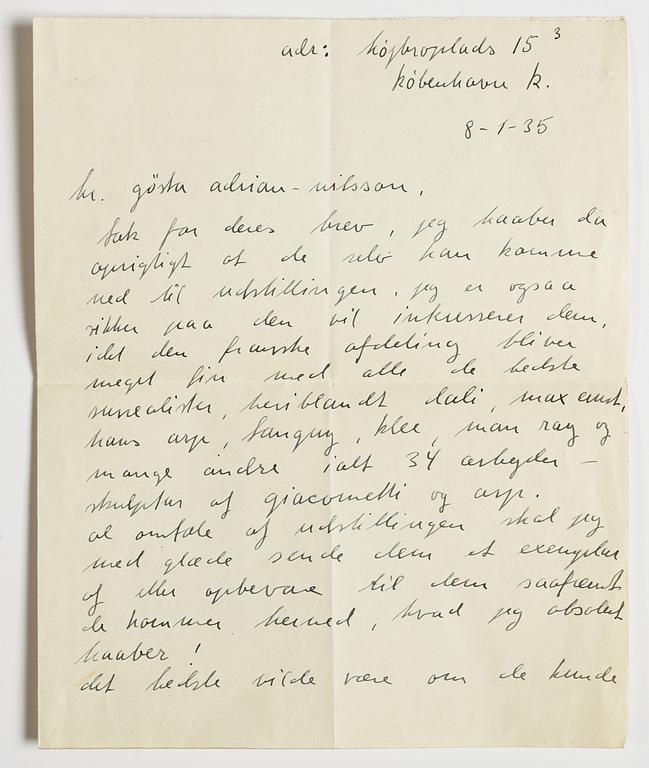 adr: højbroplads 15 3
københavn k.
8-1-35
hr. gösta adrian-nilsson,
tak for deres brev, jeg haaber da
oprigtigt at de selv kan komme
ned til udstillingen, jeg er ogsaa
sikker paa den vil interesserer dem,
idet den franske afdeling bliver
meget fin med alle de bedste
surrealister, heriblandt dali, max ernst,
hans arp, tanguy, klee, man ray og
mange andre ialt 34 arbejder –
skulptur af giacometti og arp.
al omtale af udstillingen skal jeg
med glæde sende dem et exemplar
af eller opbevare til dem saafremt
de kommer herned, hvad jeg absolut
haaber!
det bedste vilde være om de kunde